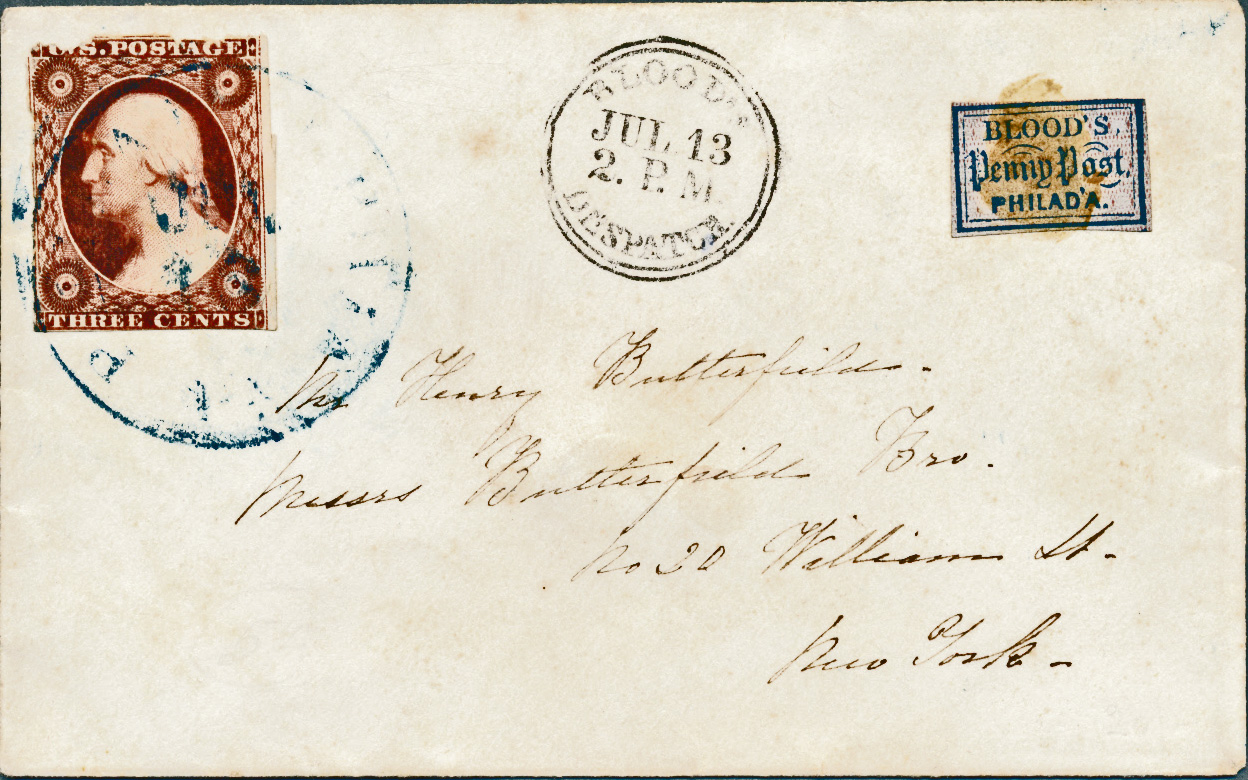 U.S. POSTAGE
THREE CENTS
BLOOD'S
JUL 13
2. P. M.
DESPATCH.
BLOOD'S.
Penny Post.
PHILAD'A.
Mr Henry Butterfield.
Messrs Butterfield Bro.
No 20 William St.
New York.